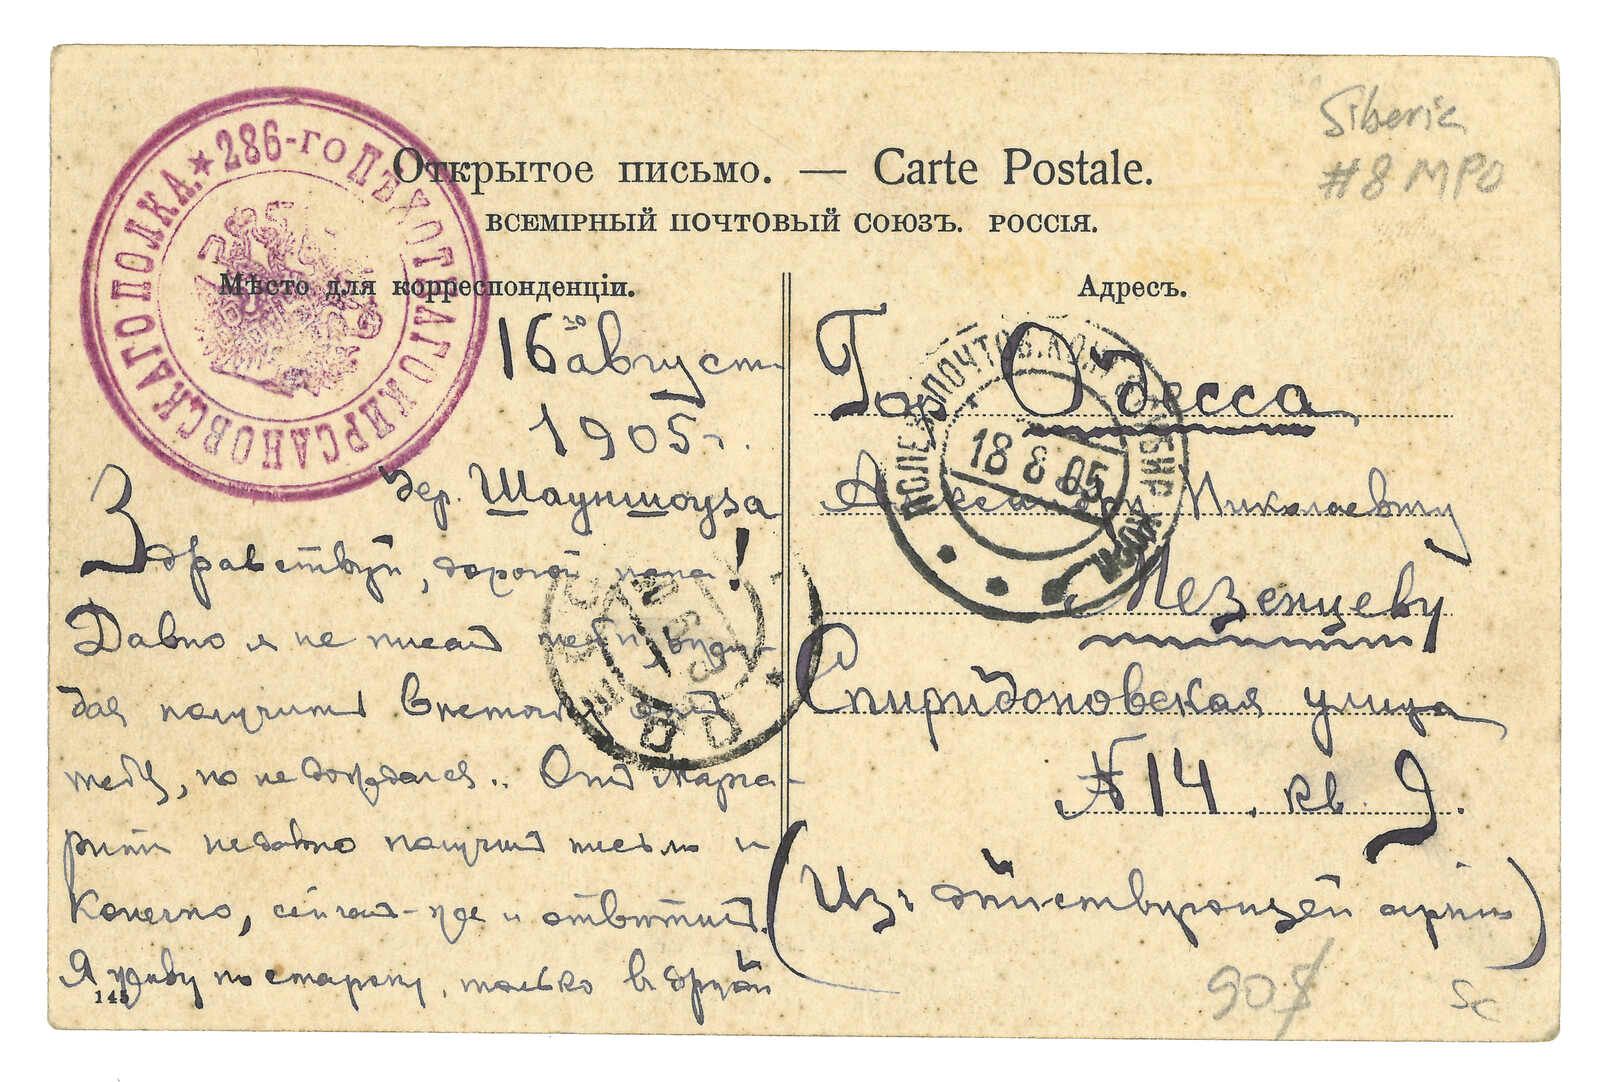 Siberia
#8 MPO
★ 286-го ПѢХОТНАГО КИРСАНОВСКАГО ПОЛКА.
Открытое письмо. — Carte Postale.
ВСЕМІРНЫЙ ПОЧТОВЫЙ СОЮЗЪ. РОССІЯ.
Мѣсто для корреспонденціи.
16го август
1905 г.
дер. Шауншоуза
Здравствуй, дорогой папа!
Давно я не писалъ тебѣ,
получить
тебя, но не дождался. Отъ Марга-
риты недавно получилъ письмо и
конечно, сейчас-же и отвѣтилъ.
Я живу по старому, только въ другой
145
Адресъ.
Гор Одесса
Александру Николаевичу
Мезенцеву
Спиридоновская улица
№ 14. кв. 9.
(Изъ дѣйствующей арміи)
18 8 05
90$
Sc